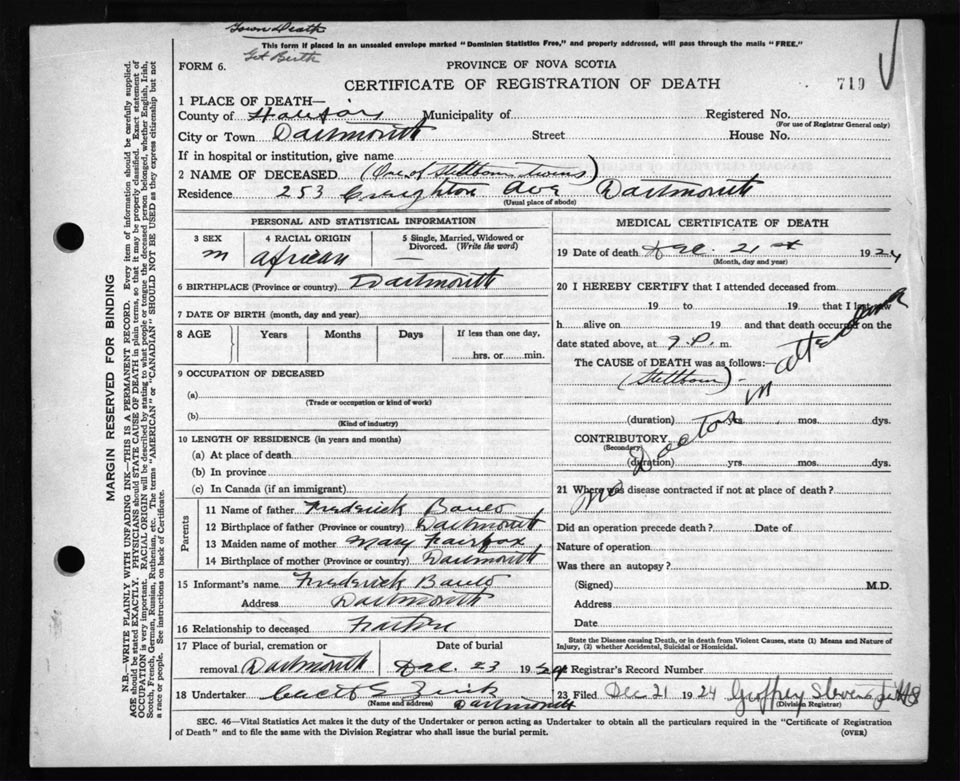 Town Death
Get Birth
This form if placed in an unsealed envelope marked "Dominion Statistics Free," and properly addressed, will pass through the mails "FREE."
FORM 6.
PROVINCE OF NOVA SCOTIA
CERTIFICATE OF REGISTRATION OF DEATH
719
1 PLACE OF DEATH—
County of Halifax Municipality of Registered No.
(For use of Registrar General only)
City or Town Dartmouth Street House No.
If in hospital or institution, give name
2 NAME OF DECEASED (One of Stillborn twins)
Residence 253 Creighton Ave Dartmouth
(Usual place of abode)
PERSONAL AND STATISTICAL INFORMATION
3 SEX 4 RACIAL ORIGIN 5 Single, Married, Widowed or Divorced. (Write the word)
m African —
6 BIRTHPLACE (Province or country) Dartmouth
7 DATE OF BIRTH (month, day and year)
8 AGE Years Months Days If less than one day,
hrs. or min.
9 OCCUPATION OF DECEASED
(a)
(Trade or occupation or kind of work)
(b)
(Kind of industry)
10 LENGTH OF RESIDENCE (in years and months)
(a) At place of death
(b) In province
(c) In Canada (if an immigrant)
Parents
11 Name of father Frederick
12 Birthplace of father (Province or country) Dartmouth
13 Maiden name of mother Mary Fairfax
14 Birthplace of mother (Province or country) Dartmouth
15 Informant's name Frederick
Address Dartmouth
16 Relationship to deceased
17 Place of burial, cremation or Date of burial
removal Dartmouth Dec. 23 1924
18 Undertaker
(Name and address) Dartmouth
MEDICAL CERTIFICATE OF DEATH
19 Date of death Dec. 21st 1924
(Month, day and year)
20 I HEREBY CERTIFY that I attended deceased from
19 to 19 that I last saw
h alive on 19 and that death occurred on the
date stated above, at 9 P. m.
The CAUSE of DEATH was as follows:—
(Stillborn)
No Doctor in attendance
(duration) yrs. mos. dys.
CONTRIBUTORY
(Secondary)
(duration) yrs. mos. dys.
21 Where was disease contracted if not at place of death?
Did an operation precede death? Date of
Nature of operation
Was there an autopsy?
(Signed) M.D.
Address
Date
State the Disease causing Death, or in death from Violent Causes, state (1) Means and Nature of
Injury, (2) whether Accidental, Suicidal or Homicidal.
22 Registrar's Record Number
23 Filed Dec 21 1924 Geoffrey Stevens
(Division Registrar)
SEC. 46—Vital Statistics Act makes it the duty of the Undertaker or person acting as Undertaker to obtain all the particulars required in the "Certificate of Registration
of Death" and to file the same with the Division Registrar who shall issue the burial permit. (OVER)
MARGIN RESERVED FOR BINDING
N.B.—WRITE PLAINLY WITH UNFADING INK—THIS IS A PERMANENT RECORD. Every item of information should be carefully supplied.
AGE should be stated EXACTLY. PHYSICIANS should STATE CAUSE OF DEATH in plain terms, so that it may be properly classified. Exact statement of
OCCUPATION is very important. RACIAL ORIGIN will be described by stating to what people or tongue the deceased person belonged, whether English, Irish,
Scotch, French, German, Russian, Ruthenian, etc. The terms "AMERICAN" or "CANADIAN" SHOULD NOT BE USED as they express citizenship but not
a race or people. See instructions on back of Certificate.